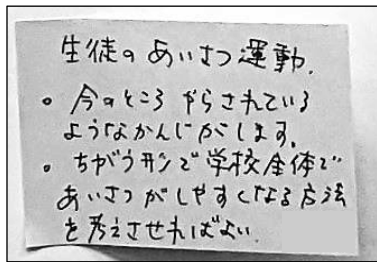 生徒のあいさつ運動.
・今のところ やらされている
ようなかんじがします.
・ちがうカンジで学校全体で
あいさつがしやすくなる方法
を考えさせればよい.